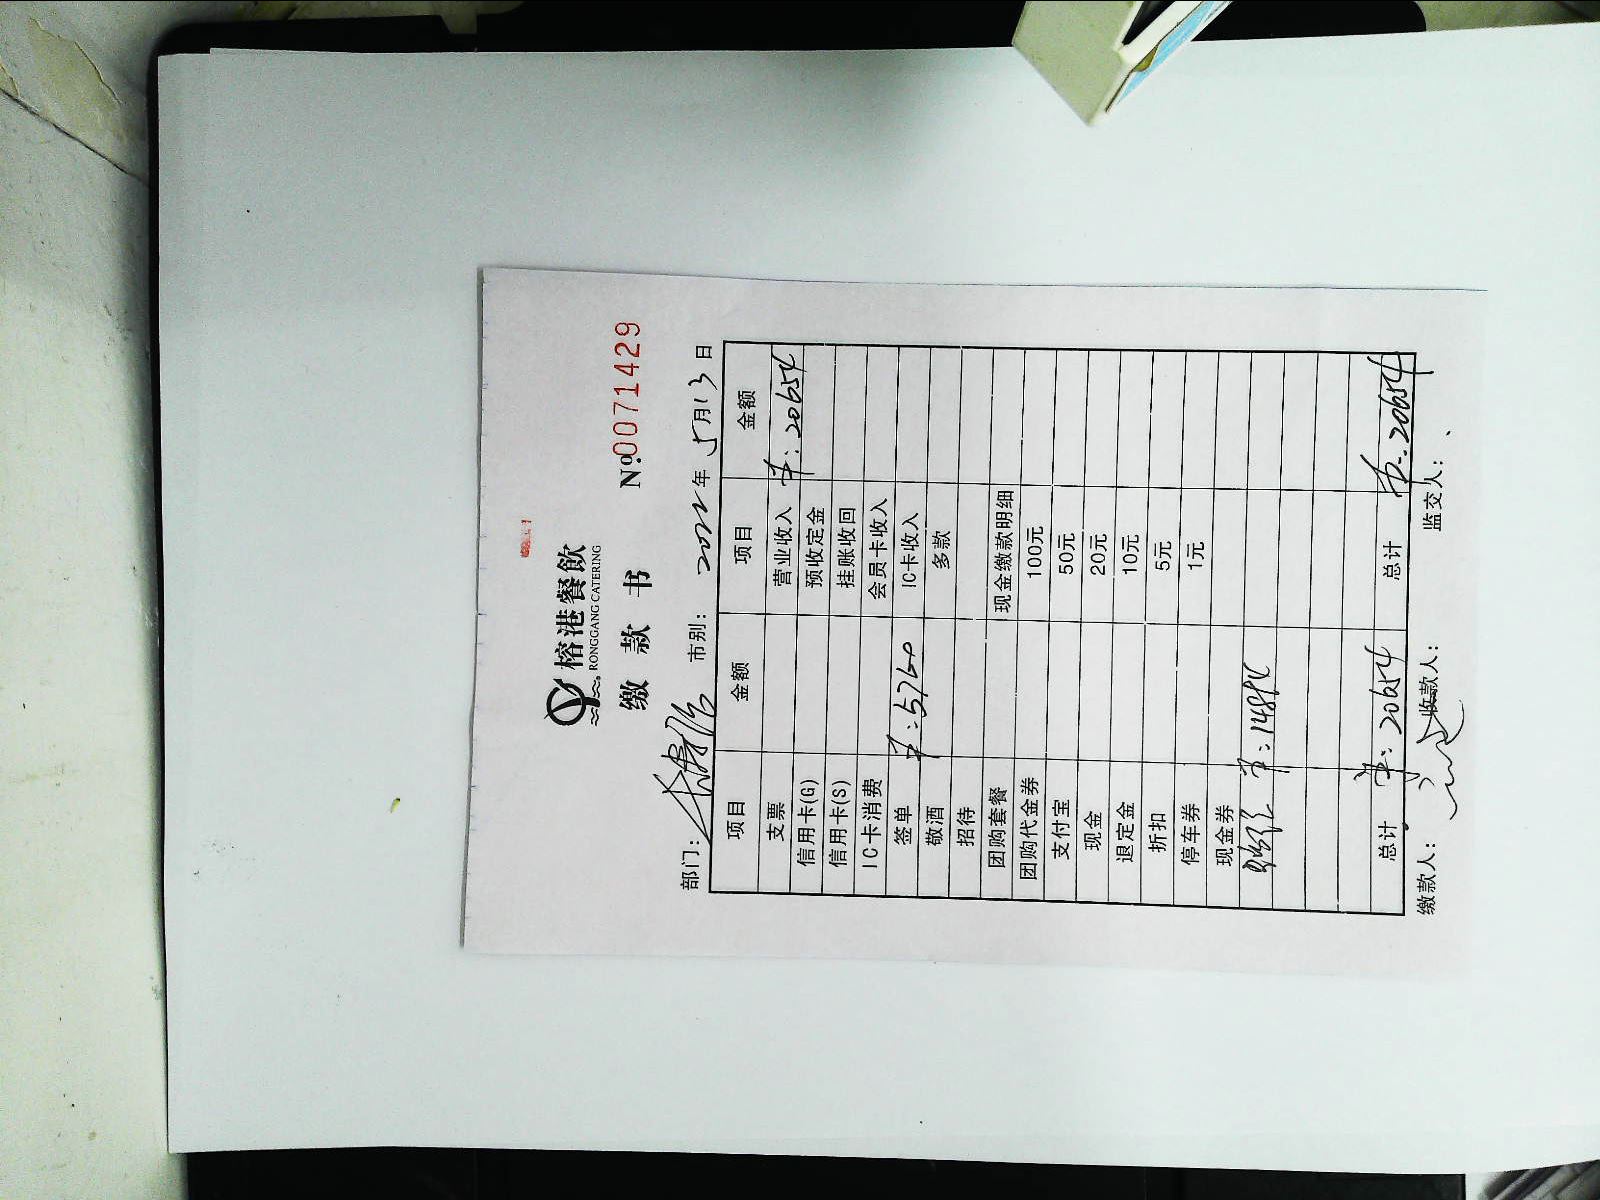 榕港餐飲
RONGGANG CATERING
缴 款 书
№0071429
部门: 市别: 2022年5月13日
项目 金额 项目 金额
支票 营业收入 羊:20654
信用卡(G) 预收定金
信用卡(S) 挂账收回
IC卡消费 会员卡收入
签单 羊:5760 IC卡收入
敬酒 多款
招待
团购套餐 现金缴款明细
团购代金券 100元
支付宝 50元
现金 20元
退定金 10元
折扣 5元
停车券 1元
现金券
羊:14894
总计 羊:20654 总计 羊:20654
缴款人: 收款人: 监交人: